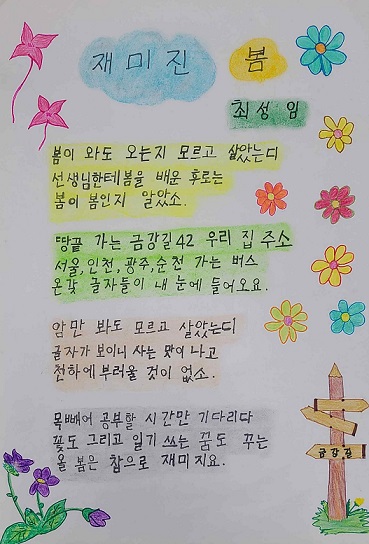 재미진 봄
최성임
봄이 와도 오는지 모르고 살았는디
선생님한테봄을 배운 후로는
봄이 봄인지 알았소.
땅끝 가는 금강길42 우리 집 주소
서울,인천,광주,순천 가는 버스
온갖 글자들이 내 눈에 들어오요.
암만 봐도 모르고 살았는디
글자가 보이니 사는 맛이 나고
천하에 부러울 것이 없소.
목빼어 공부할 시간만 기다리다
꽃도 그리고 일기 쓰는 꿈도 꾸는
올 봄은 참으로 재미지요.
금강길